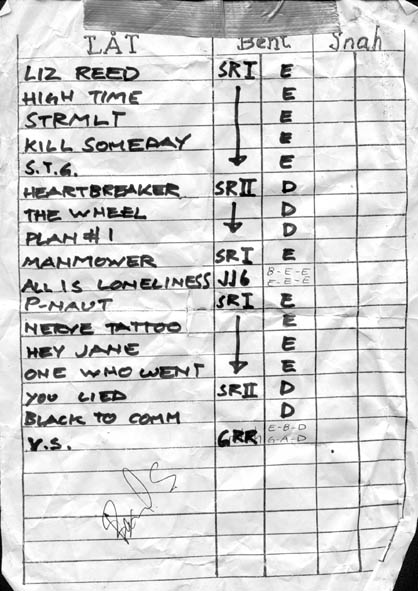 LÅT Bent Snah
LIZ REED SRI E
HIGH TIME E
STRMLT E
KILL SOMEDAY E
S.T.G. E
HEARTBREAKER SRII D
THE WHEEL D
PLAN #1 D
MANMOWER SRI E
ALL IS LONELINESS JJ6 B-E-E
E-E-E
P-NAUT SRI E
NERVE TATTOO E
HEY JANE E
ONE WHO WENT E
YOU LIED SRII D
BLACK TO COMM D
V.S. GRR E-B-D
G-A-D